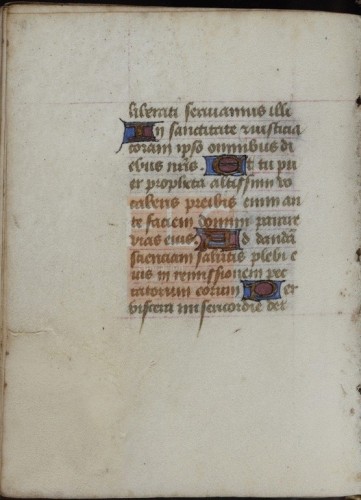 liberati seruiamus illi
In sanctitate & iusticia
coram ipso omnibus di
ebus nr̄is. Et tu pu
er propheta altissimi vo
caberis preibis enim an
te faciem domini parare
vias eius. Ad dandā
scienciam salutis plebi e
ius in remissionem pec
catorum eorum Per
viscera misericordie dei